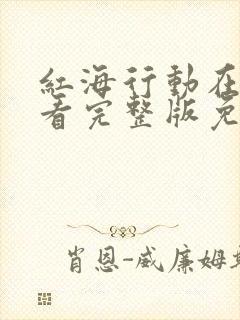 紅海行動在
看完整版免
肖恩-威廉姆